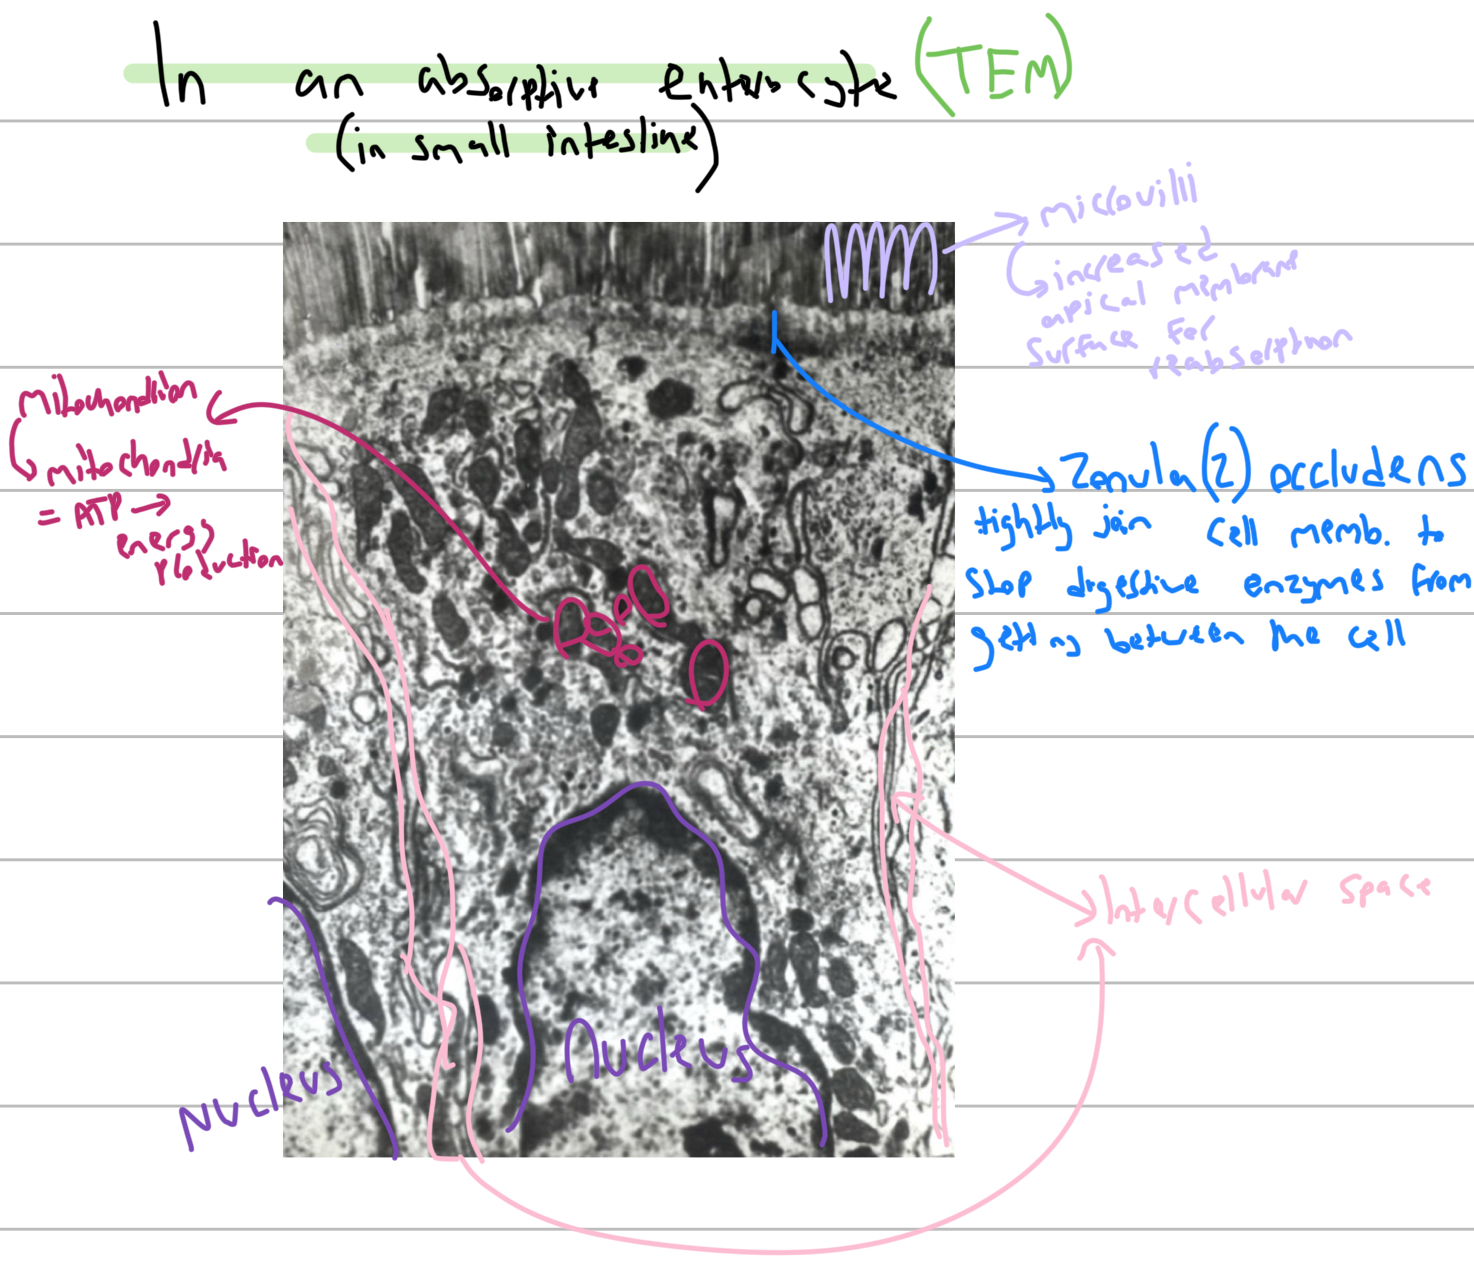 In an absorptive enterocyte (TEM)
(in small intestine)
microvilli
increased
apical membrane
surface for
reabsorption
mitochondrion
mitochondria
= ATP →
energy
production
Zonula (Z) occludens
tightly join cell memb. to
stop digestive enzymes from
getting between the cell
Intercellular space
Nucleus
Nucleus